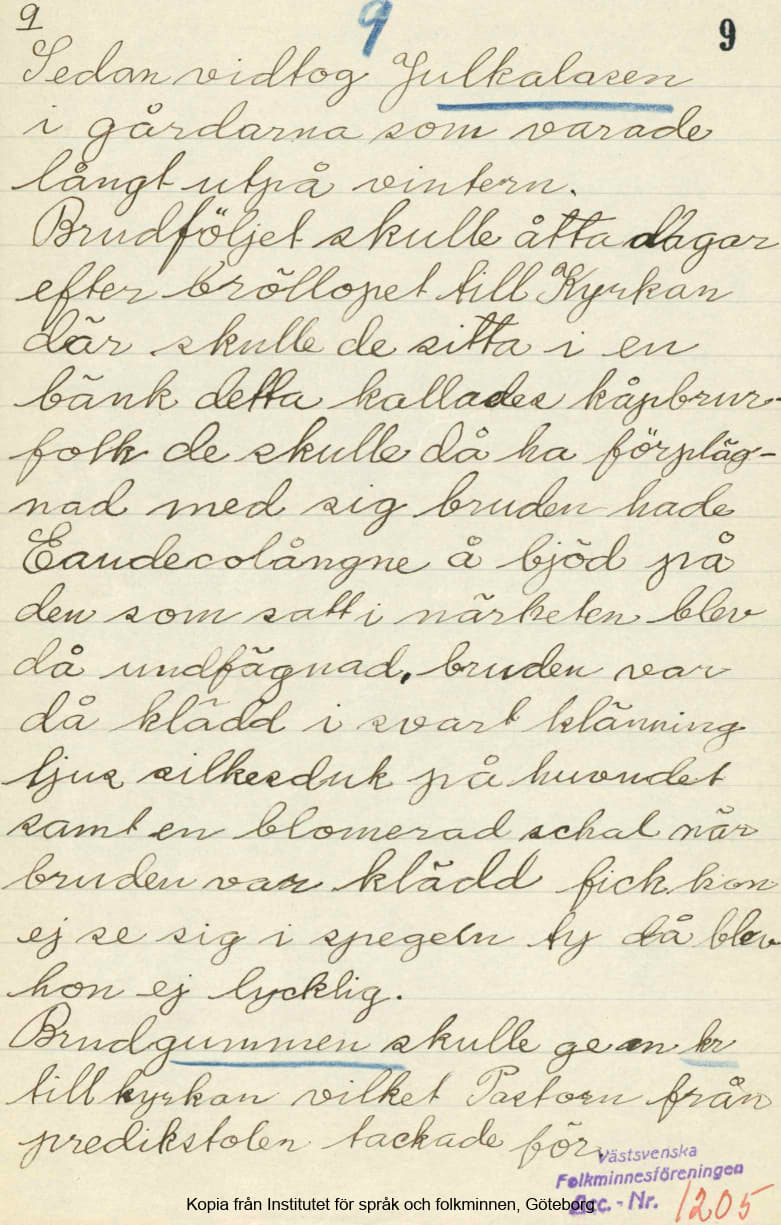 9 9 9
Sedan vidtog Julkalasen
i gårdarna som varade
långt utpå vintern.
Brudföljet skulle åtta dagar
efter bröllopet till Kyrkan
där skulle de sitta i en
bänk detta kallades kåpbrur-
folk de skulle då ha förpläg-
nad med sig bruden hade
Eaudecolångne å bjöd på
den som satt i närheten blev
då undfägnad, bruden var
då klädd i svart klänning
ljus silkesduk på huvudet
samt en blomerad schal när
bruden var klädd fick hon
ej se sig i spegeln ty då blev
hon ej lycklig.
Brudgummen skulle ge en kr
till kyrkan vilket Pastorn från
predikstolen tackade för.
Västsvenska
Folkminnesföreningen
Acc. - Nr. 1205
Kopia från Institutet för språk och folkminnen, Göteborg